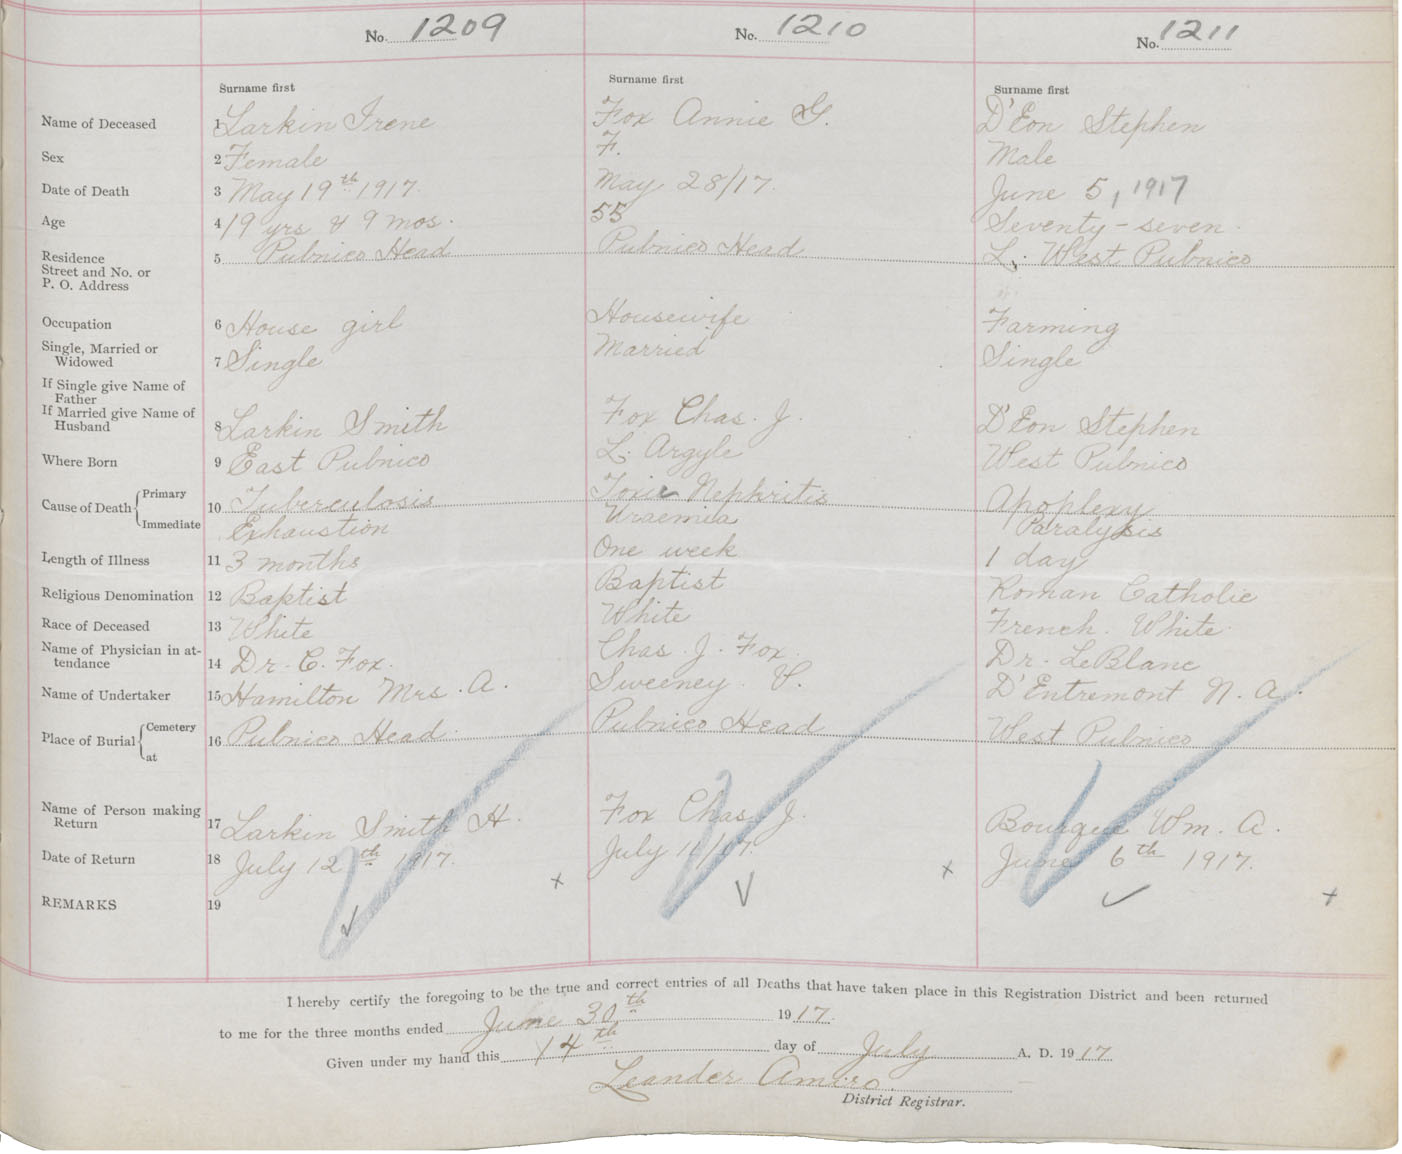 No. 1209 No. 1210 No. 1211
Surname first Surname first Surname first
Name of Deceased 1 Larkin Irene Fox Annie G. D'Eon Stephen
Sex 2 Female F. Male
Date of Death 3 May 19th 1917. May 28/17. June 5, 1917
Age 4 19 yrs & 9 mos. 55 Seventy-seven.
Residence
Street and No. or
P. O. Address 5 Pubnico Head Pubnico Head L. West Pubnico
Occupation 6 House girl Housewife Farming
Single, Married or
Widowed 7 Single Married Single
If Single give Name of
Father
If Married give Name of
Husband 8 Larkin Smith Fox Chas. J. D'Eon Stephen
Where Born 9 East Pubnico L. Argyle West Pubnico
Cause of Death { Primary 10 Tuberculosis Toxic Nephritis Apoplexy
Immediate Exhaustion Uraemia Paralysis
Length of Illness 11 3 months One week 1 day
Religious Denomination 12 Baptist Baptist Roman Catholic
Race of Deceased 13 White White French. White
Name of Physician in at-
tendance 14 Dr. C. Fox. Chas. J. Fox. Dr. LeBlanc
Name of Undertaker 15 Hamilton Mrs. A. Sweeney. V. D'Entremont N. A.
Place of Burial { Cemetery
at 16 Pubnico Head Pubnico Head West Pubnico
Name of Person making
Return 17 Larkin Smith H. Fox Chas. J. Bourque Wm. A.
Date of Return 18 July 12th 1917. July 11/17. June 6th 1917.
REMARKS 19
I hereby certify the foregoing to be the true and correct entries of all Deaths that have taken place in this Registration District and been returned
to me for the three months ended June 30th 1917.
Given under my hand this 14th day of July A. D. 1917
Leander Amiro.
District Registrar.